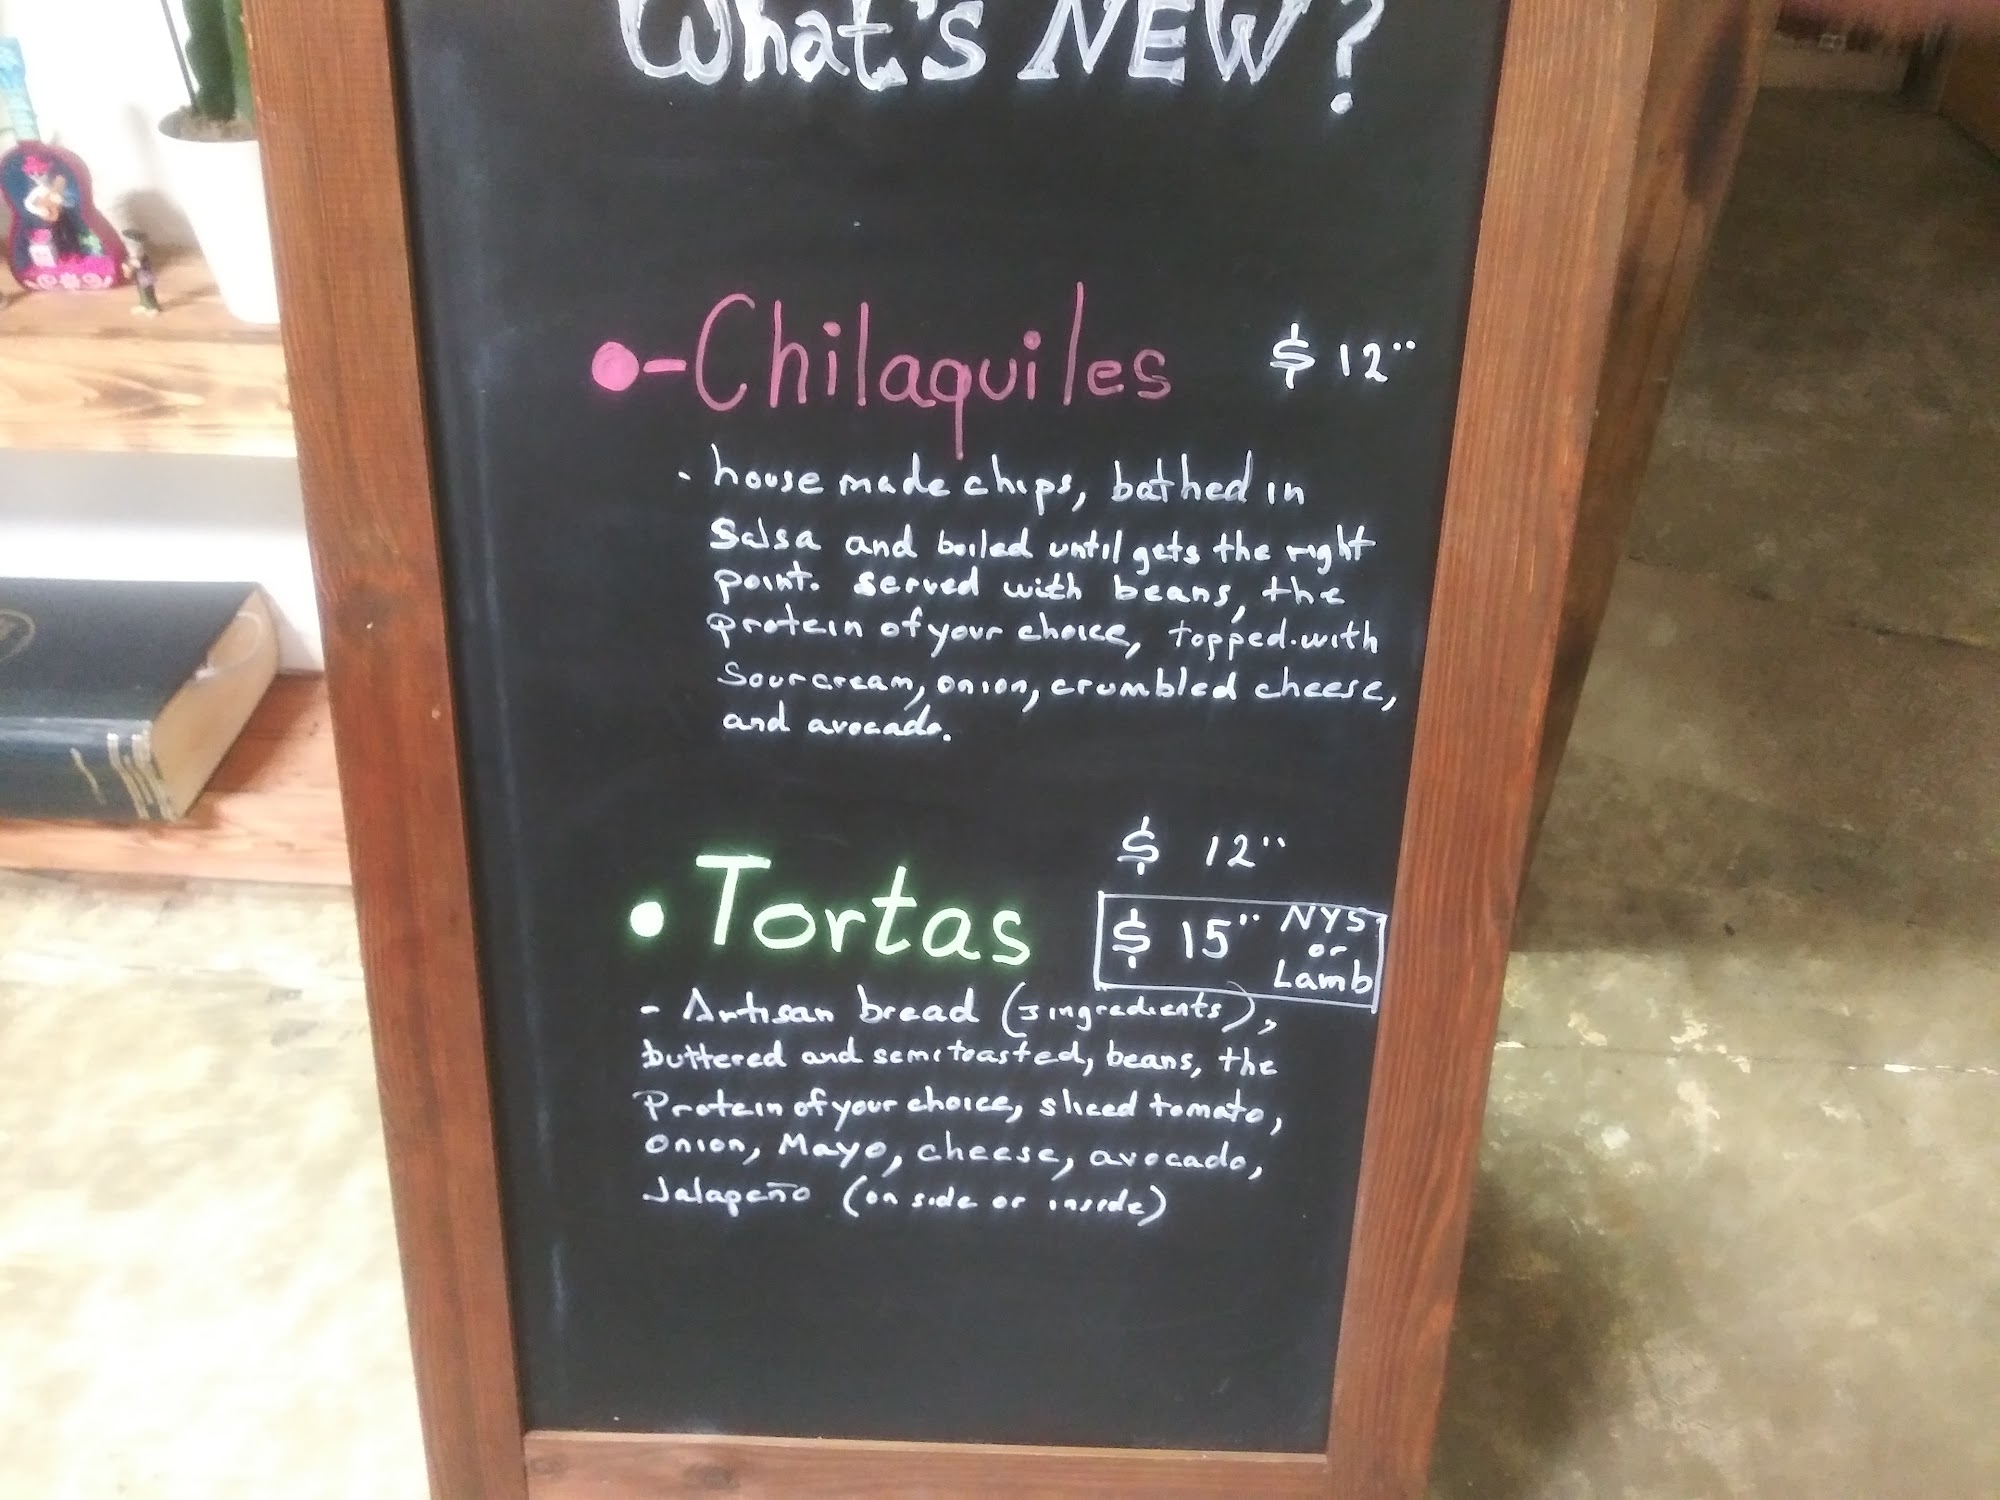 What's NEW?
•-Chilaquiles $12"
· house made chips, bathed in
salsa and boiled until gets the right
point. served with beans, the
protein of your choice, topped.with
Sour cream, onion, crumbled cheese,
and avocado.
$ 12"
• Tortas
$ 15" NYS
or
Lamb
- Artisan bread (3 ingredients),
buttered and semitoasted, beans, the
Protein of your choice, sliced tomato,
onion, Mayo, cheese, avocado,
Jalapeño (on side or inside)